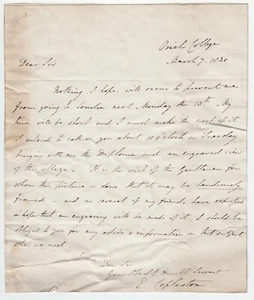 Oriel College
March 7. 1820
Dear Sir
Nothing I hope will occur to prevent me
from going to London next Monday the 13th. My
time will be short and I must make the most of it.
I intend to call on you about 11 o'clock on Tuesday,
bringing with me the Diploma and an engraved view
of the College. It is the wish of the Gentleman for
whom this picture is done, that it may be handsomely
framed - and as several of my friends have expressed
a hope that an engraving will be made of it, I should be
obliged to you for any advice & information on that subject
when we meet.
Dear Sir
Your Servant
E. Copleston